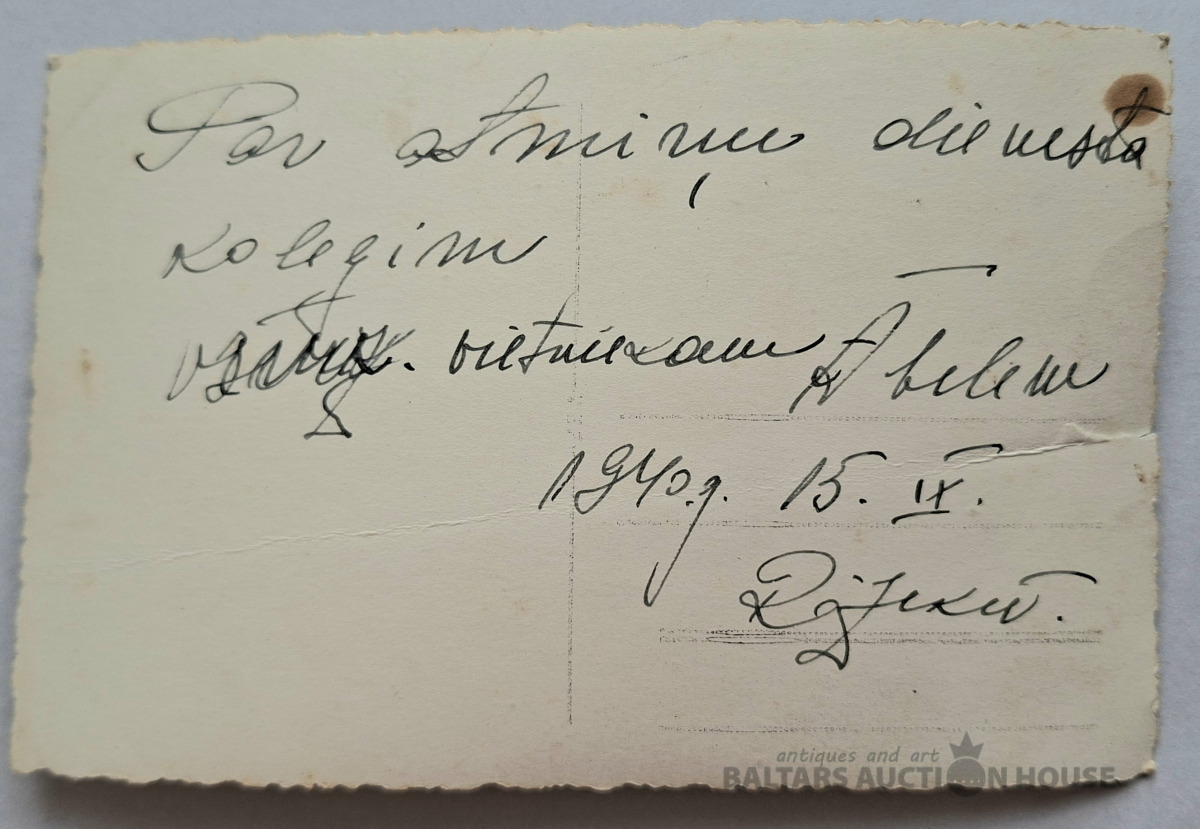 Par atmiņu dienesta
kolēgim
vietniekam Ābelem
1940.g. 15. IX.
antiques and art
BALTARS AUCTION HOUSE